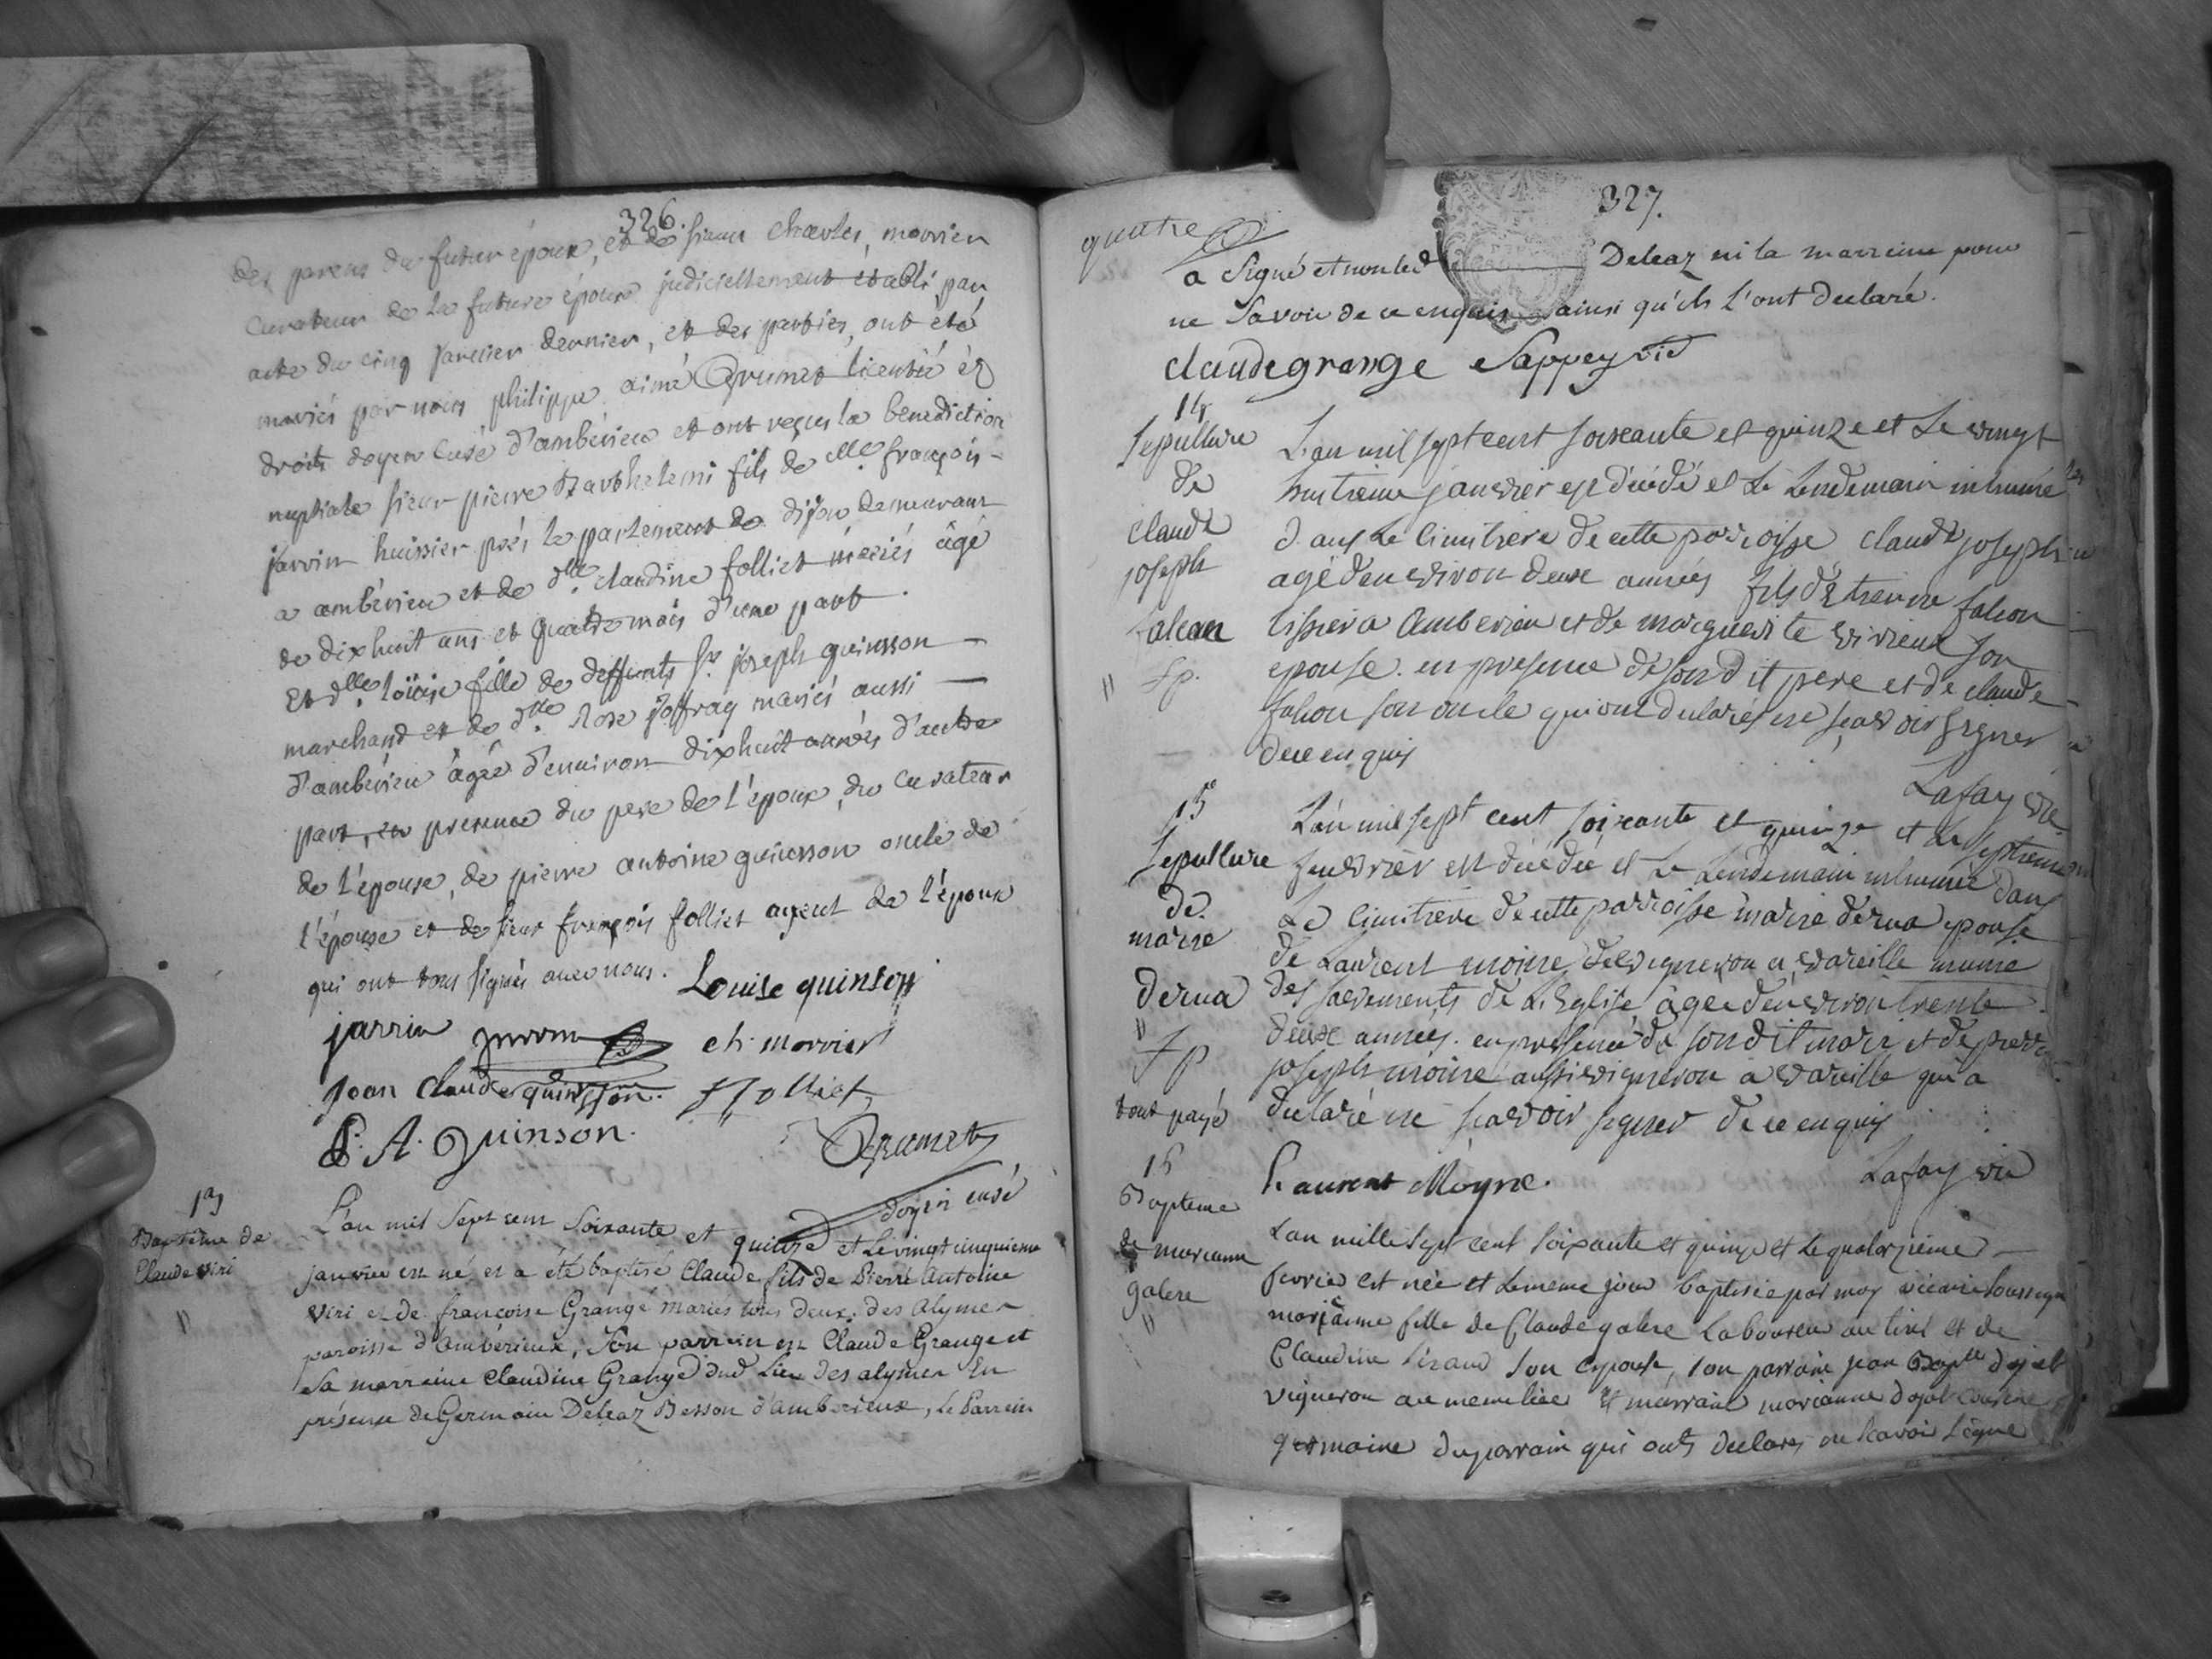 326.
des parens du futur époux, et de sieur Charles morrier
curateur de la future épouse judiciellement établi par
acte du cinq janvier dernier, et des parties, ont été
mariés par nous philippe aimé Grumet licentié és
droits doyen curé d'ambérieu et ont reçus la benediction
nuptiale sieur pierre Barthelemi fils de françois
jarrin huissier près le parlement de dijon demeurant
a ambérieu et de dlle. claudine folliet mariés âgé
de dixhuit ans et quatre mois d'une part.
Et dlle. loüise fille de deffunts sr. joseph quinsson
marchand et de dlle. Rose joffray mariés aussi
d'ambérieu âgée d'environ dixhuit années d'autre
part, en presence du pere de l'époux, du curateur
de l'épouse, de pierre antoine quinsson oncle de
l'épouse et de sieur françois folliet ayeul de l'époux
qui ont tous signés avec nous. Louise quinson
jarrin jarrin ch. morrier
Jean Claude quinsson. f folliet
P. A. Quinson. Grumet
doyen curé
13
Baptême de
Claude viri
L'an mil sept cent soixante et quinze et le vingt cinquieme
janvier est né et a été baptisé Claude fils de Pierre Antoine
viri et de françoise Grange mariés tous deux des alymes
paroisse d'Ambérieux, son parrein est Claude Grange et
sa marreine Claudine Grange dud. lieu des alymes En
présence de Germain Deleaz Besson d'Ambérieux, le Parrein
327.
quatre
a signé et non led. Deleaz ni la marreine pour
ne savoir de ce enquis ainsi qu'ils l'ont declaré.
claude grange Sappey vic
14
sepulture
de
claude
joseph
falcon
fp.
L'an mil sept cent soixante et quinze et Le vingt
huitieme janvier est décédé et Le Lendemain inhumé
dans Le cimitiere de cette parroisse claude joseph
agé d'environ deux années fils d'Etienne falcon
tissier a Amberieu et de marguerite vivieux son
epouse. en presence de son dit pere et de claude
falcon son oncle qui ont declarés ne sçavoir signer
de ce enquis
Lafay vic.
15
sepulture
de
marie
derua
fp
tout payé
L'an mil sept cent soixante et quinze et Le septieme
fevrier est décédée et Le Lendemain inhumée dans
Le cimitiere de cette parroisse marie derua epouse
de Laurent moine vigneron a vareille munie
des sacrements de L'Eglise, agée d'environ trente
deux années. en presence de son dit mari et de pierre
joseph moine aussi vigneron a vareille qui a
declaré ne sçavoir signer de ce enquis
Laurent Moyne. Lafay vic
16
Bapteme
de marianne
galere
L'an mille sept cent soixante et quinze et le quatorzieme
fevrier est née et le meme jour baptisée par moy vicaire soussigné
marianne fille de Claude galere laboureur au tiret et de
Claudine son epouse, son parrain jean Baptte dojat
vigneron au meme lieu et marraine marianne dojat cousine
germaine du parrain qui ont declarés ne scavoir signe